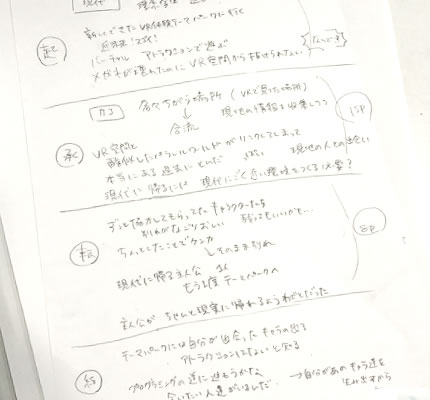 現代
起
新しくできたVR体験テーマパークに行く
近未来って感じ
バーチャル アトラクションで遊ぶ
メガネが壊れたのにVR空間から抜けられない
なんで!?
カコ
各々ちがう場所 (VRで見てた場所)
↓
合流
現地の情報を収集しつつ
承
VR空間と
酷似したパラレルワールドがリンクしてしまって
本当にある過去にとんだ
現地の人との出会い
現代に帰るには 現代にごく近い環境をつくる必要?
ずっと協力してもらってたキャラクターたち
別れがなごりおしい 残ってもいいかも…
転
ちょっとしたことでケンカ
→そのまま別れ
現代に帰る主人公 1人
もう1度テーマパークへ
主人公が ちゃんと現実に帰れるようわざとだった
テーマパークには自分が出会ったキャラの出る
アトラクションはないと知る
結
プログラミングの道に進もうかな
会いたい人達がいるんだ →自分があのキャラ達を
生み出すから